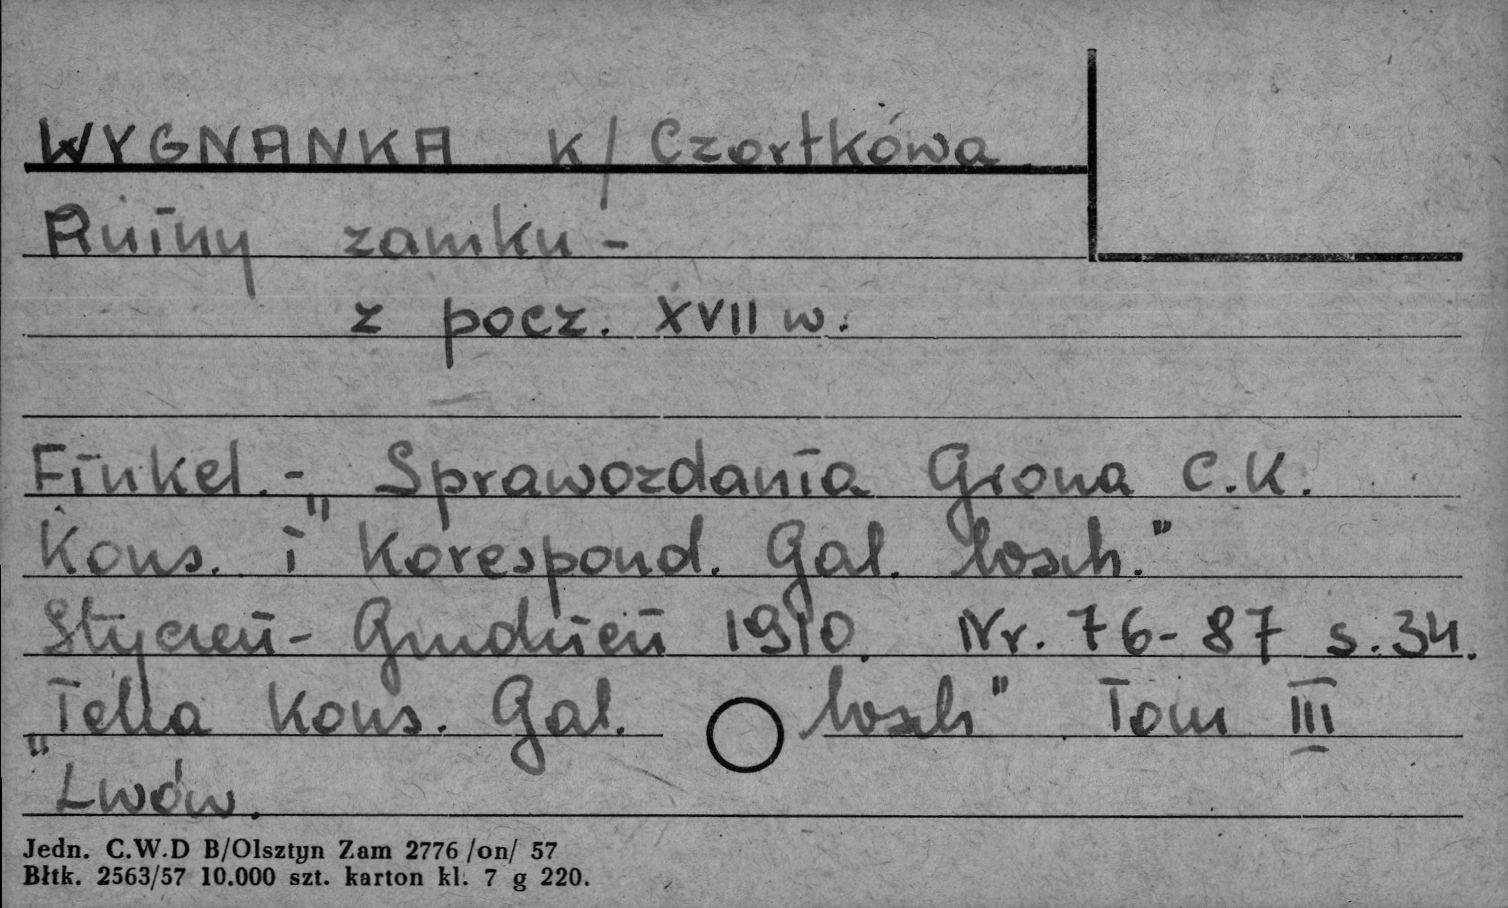 WYGNANKA K/ Czortkówa
Ruiny zamku -
z pocz. XVII w.
Finkel. - „Sprawozdania Grona C.K.
Kons. i Korespond. Gal. Wsch."
Styczeń - Grudzień 1910. Nr. 76-87 s. 34.
„Teka Kons. Gal. Wsch" Tom III
Lwów.
Jedn. C.W.D B/Olsztyn Zam 2776 /on/ 57
Błtk. 2563/57 10.000 szt. karton kl. 7 g 220.